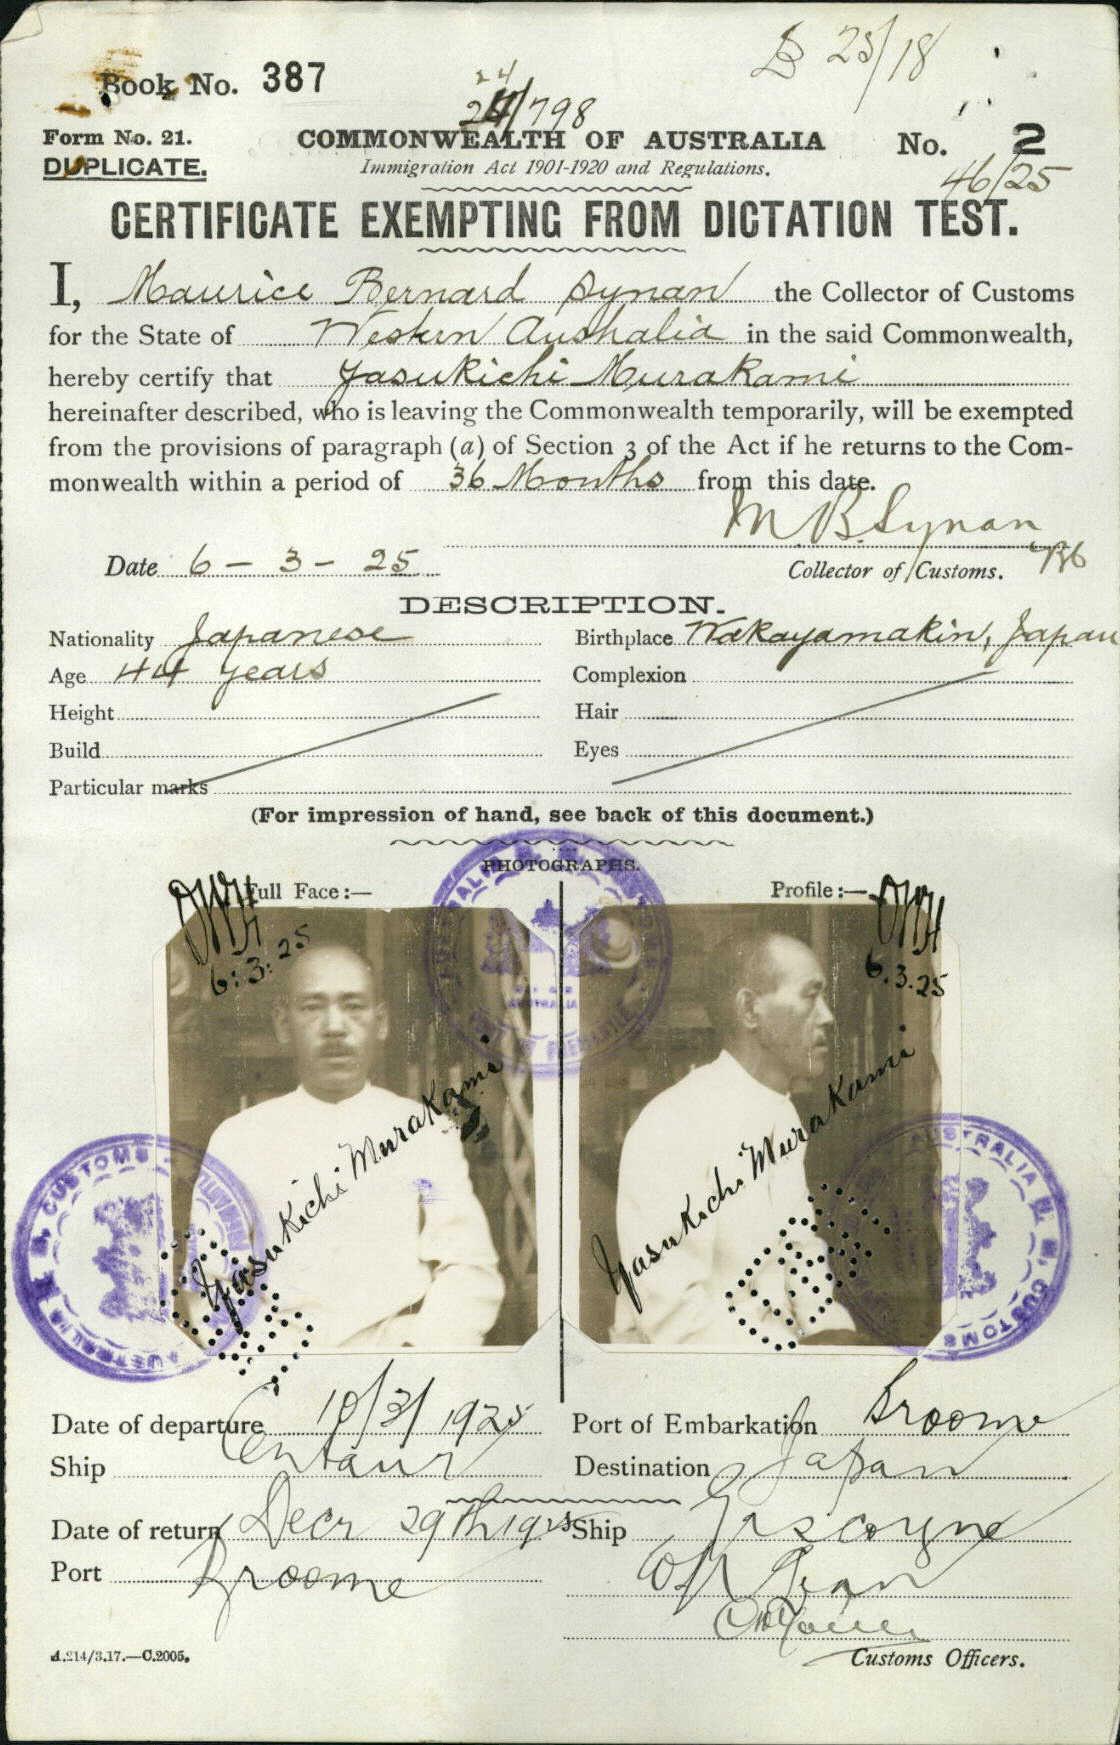 25/18
Book No. 387
24
24/798
Form No. 21.
COMMONWEALTH OF AUSTRALIA
No. 2
DUPLICATE.
Immigration Act 1901-1920 and Regulations.
46/25
CERTIFICATE EXEMPTING FROM DICTATION TEST.
I, Maurice Bernard Synan the Collector of Customs
for the State of Western Australia in the said Commonwealth,
hereby certify that Yasukichi Murakami
hereinafter described, who is leaving the Commonwealth temporarily, will be exempted
from the provisions of paragraph (a) of Section 3 of the Act if he returns to the Com-
monwealth within a period of 36 Months from this date.
M. B. Synan
Date 6 - 3 - 25
Collector of Customs.
DESCRIPTION.
Nationality Japanese Birthplace Wakayamakin, Japan
Age 44 years Complexion
Height Hair
Build Eyes
Particular marks
(For impression of hand, see back of this document.)
PHOTOGRAPHS.
Full Face:— Profile:—
DWH DWH
6.3.25 6.3.25
Yasukichi Murakami Yasukichi Murakami
Date of departure 10/3/1925 Port of Embarkation Broome
Ship Centaur Destination Japan
Date of return Decr 29th 1925 Ship Gascoyne
Port Broome
A.214/3.17.—C.2005.
Customs Officers.